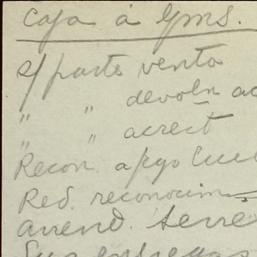 Caja á Gms.
s/ parte venta
" " devoln ac
" " acrect
Recon. a/cgo Cue
Red. reconocim
arrend. terre
Sus entregas